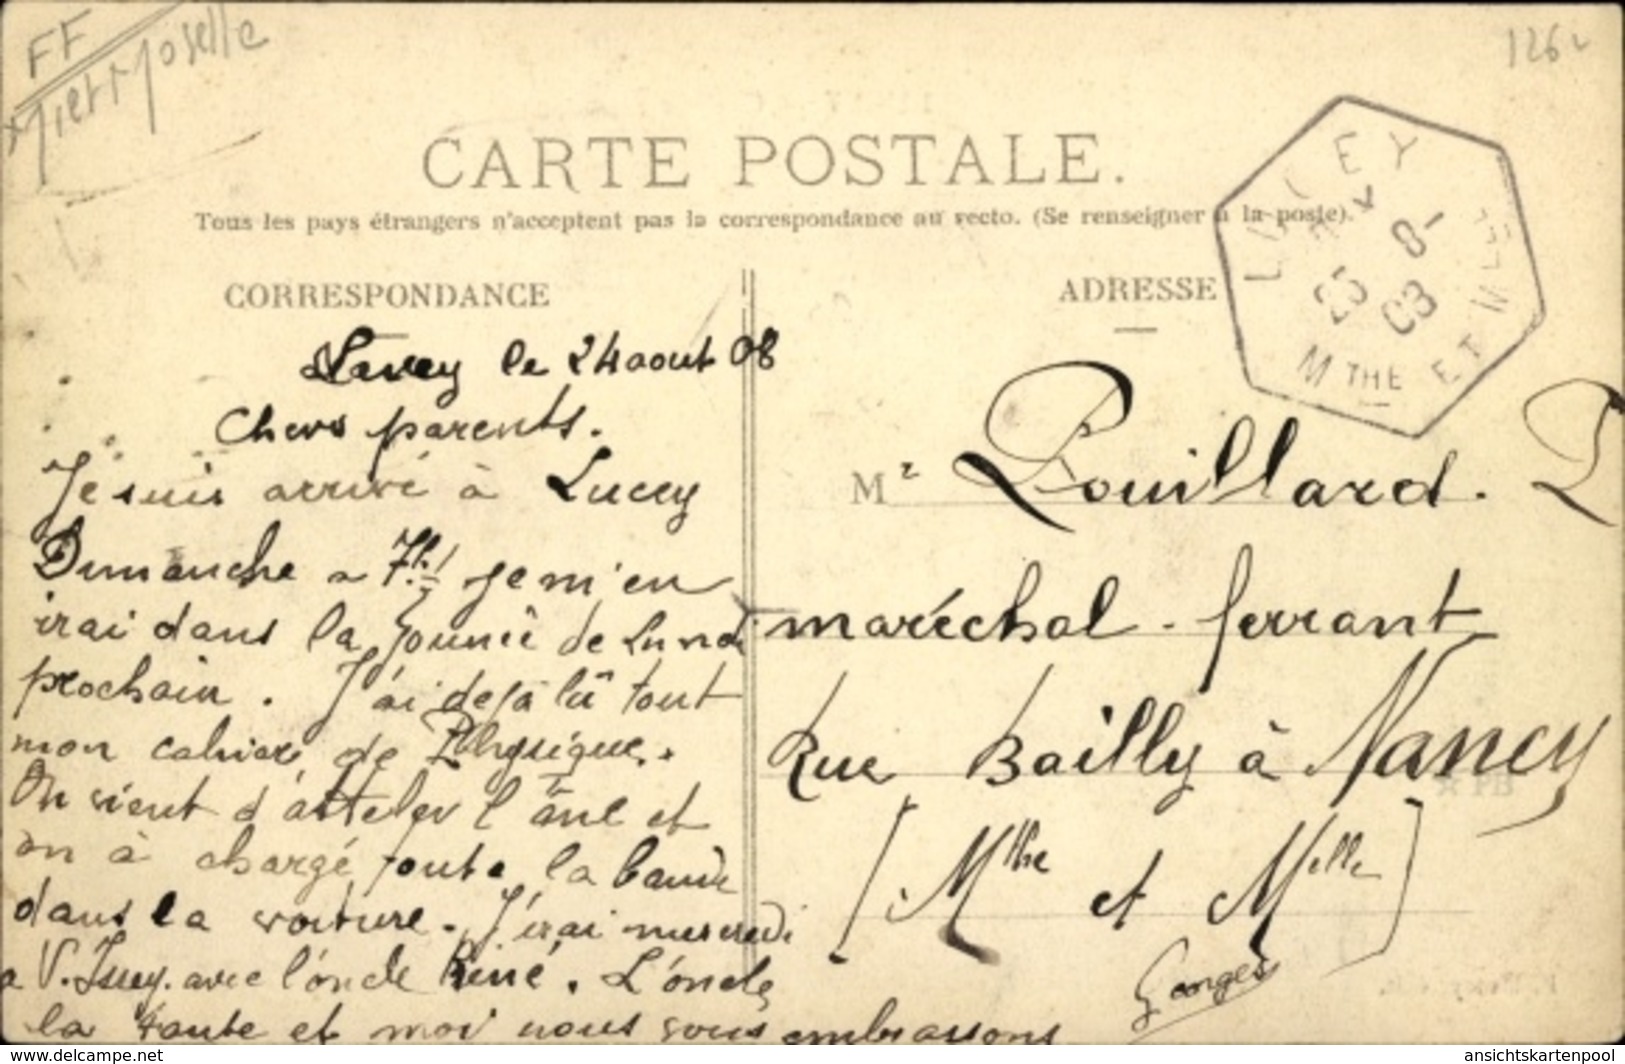 FF
126
CARTE POSTALE.
Tous les pays étrangers n'acceptent pas la correspondance au recto. (Se renseigner à la poste).
LUCEY
25 8-
08
MTHE ET MLLE
CORRESPONDANCE
ADRESSE
Lucey le 24 aout 08
Chers parents.
Je suis arrivé à Lucey
Dimanche a 7h. je m'en
irai dans la journée de Lundi
prochain. J'ai dejà lû tout
mon cahier de Physique.
On vient d'atteler l'âne et
on à chargé toute la bande
dans la voiture. J'irai mercredi
a V. Issey. avec l'oncle René. L'oncle
la tante et moi nous vous embrassons
Georges
Mr Pouillard. P
maréchal-ferrant
Rue Bailly à Nancy
[Mthe et Melle]
ansichtskartenpool.de
ansichtskartenpool